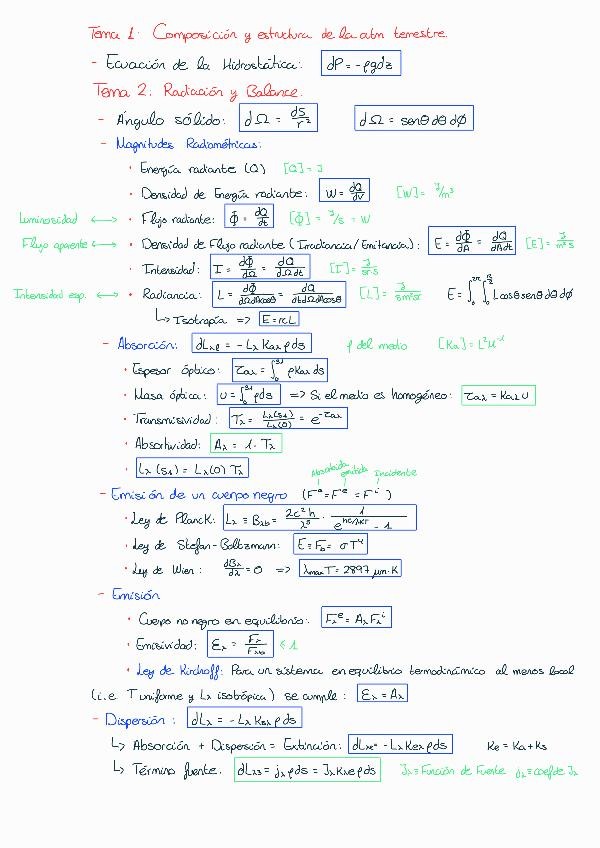 Tema 1: Composición y estructura de la atm terrestre.
- Ecuación de la Hidrostática: dP = -ρgdz
Tema 2: Radiación y Balance.
- Ángulo sólido: dΩ = dS/r² dΩ = senθ dθ dϕ
- Magnitudes Radiométricas:
· Energía radiante (Q) [Q] = J
· Densidad de Energía radiante: W = dQ/dV [W] = J/m³
Luminosidad ↔ · Flujo radiante: Φ = dQ/dt [Φ] = J/s = W
Flujo aparente ↔ · Densidad de Flujo radiante (Irradiancia/Emitancia): E = dΦ/dA = dQ/dAdt [E] = J/m²s
· Intensidad: I = dΦ/dΩ = dQ/dΩdt [I] = J/sr·s
Intensidad esp. ↔ · Radiancia: L = dΦ/dΩdAcosθ = dQ/dtdΩdAcosθ [L] = J/sm²sr E = ∫₀^2π ∫₀^π/2 Lcosθsenθdθdϕ
↳ Isotropía => E = πL
- Absorción: dLλ = -Lλ Kaλ ρ ds ρ del medio [Ka] = L²M⁻¹
· Espesor óptico: τaλ = ∫₀^s₁ ρKaλ ds
· Masa óptica: u = ∫₀^s₁ ρds => Si el medio es homogéneo: τaλ = Kaλ u
· Transmisividad: Tλ = Lλ(s₁)/Lλ(0) = e^-τaλ
· Absortividad: Aλ = 1 - Tλ
· Lλ(s₁) = Lλ(0) Tλ
Absorbida emitida Incidente
- Emisión de un cuerpo negro (Fᵃ = Fᵉ = Fⁱ)
· Ley de Planck: Lλ ≡ Bλb = 2c²h/λ⁵ · 1/e^hc/λKT - 1
· Ley de Stefan-Boltzmann: E = Fb = σT⁴
· Ley de Wien: dBλ/dλ = 0 => λmax T = 2897 μm·K
- Emisión
· Cuerpo no negro en equilibrio: Fλᵉ = AλFλⁱ
· Emisividad: ελ = Fλ/Fλb < 1
· Ley de Kirchoff: Para un sistema en equilibrio termodinámico al menos local
(i.e T uniforme y Lλ isotrópica) se cumple: ελ = Aλ
- Dispersión: dLλ = -Lλ Ksλ ρ ds
↳ Absorción + Dispersión = Extinción: dLλe = -Lλ Keλ ρ ds Ke = Ka + Ks
↳ Término fuente: dLλs = jλ ρ ds = Jλ Kλe ρ ds Jλ ≡ Función de Fuente jλ ≡ coef de Jλ